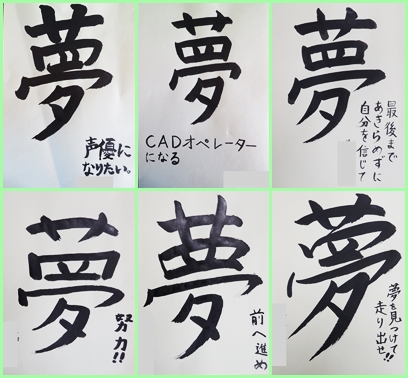 夢
声優に
なりたい。
夢
CADオペレーター
になる
夢
最後まで
あきらめずに
自分を信じて
夢
努力!!
夢
前へ進め
夢
夢を見つけて
走り出せ!!